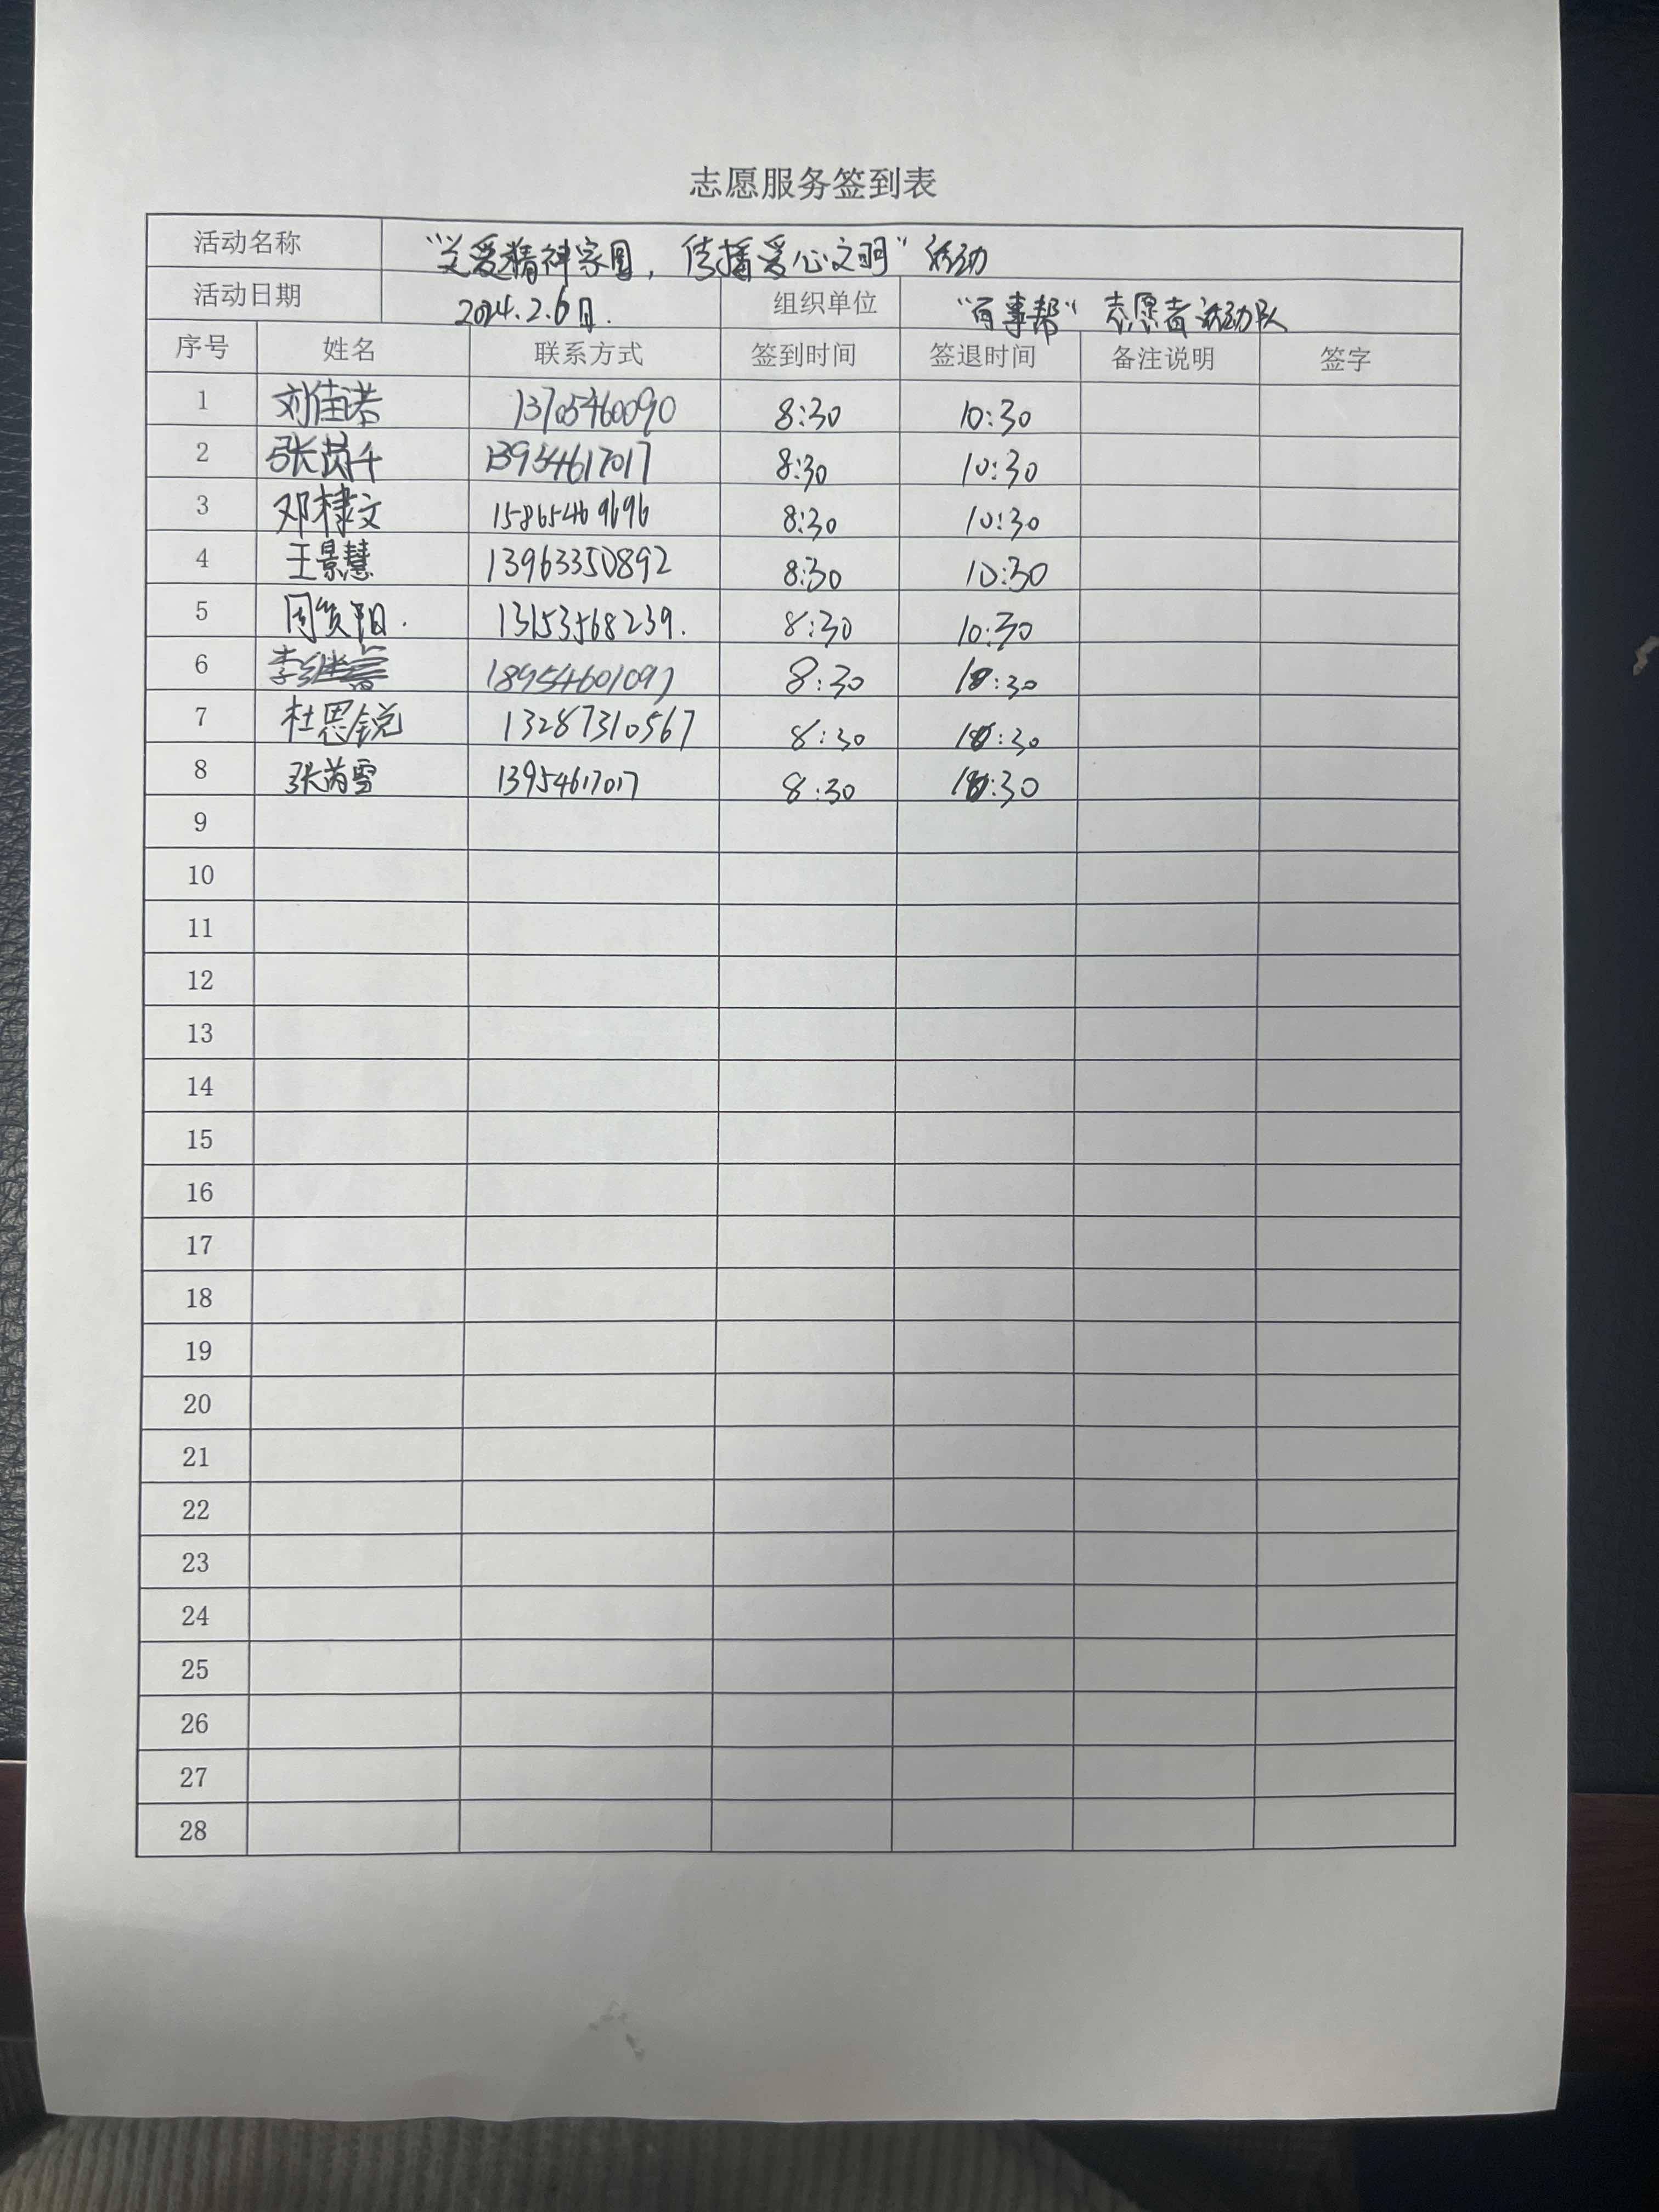 志愿服务签到表
活动名称 “关爱精神家园，传播爱心文明”活动
活动日期 2024.2.6日. 组织单位 “百事帮”志愿者活动队
序号 姓名 联系方式 签到时间 签退时间 备注说明 签字
1 刘佳诺 13705460090 8:30 10:30
2 张茵千 13954617017 8:30 10:30
3 邓棣文 15865469696 8:30 10:30
4 王景慧 13963350892 8:30 10:30
5 周贤阳. 13153568239. 8:30 10:30
6 李 18954601097 8:30 10:30
7 杜思锐 13287310567 8:30 10:30
8 张芮雪 13954617017 8:30 10:30
9
10
11
12
13
14
15
16
17
18
19
20
21
22
23
24
25
26
27
28